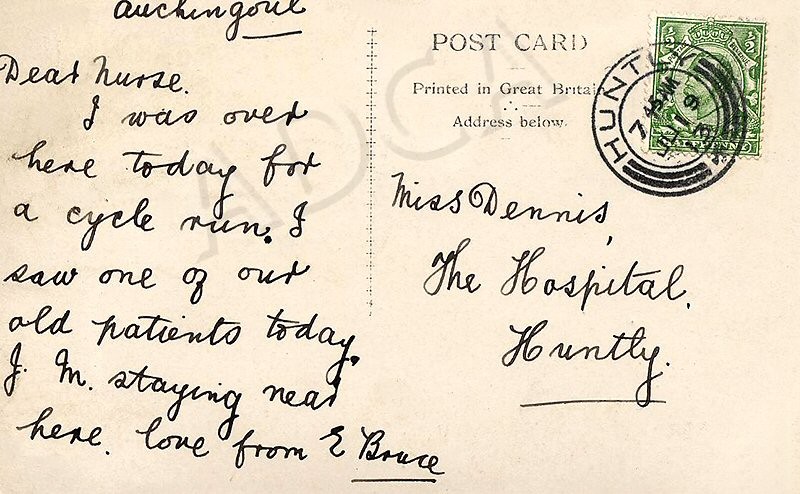 Auchingoul
Dear Nurse.
I was over
here today for
a cycle run. I
saw one of our
old patients today.
J. M. staying near
here. love from E Bruce
POST CARD
Printed in Great Britain
Address below
Miss Dennis,
The Hospital,
Huntly.
HUNTLY
7 45 PM
ADCA